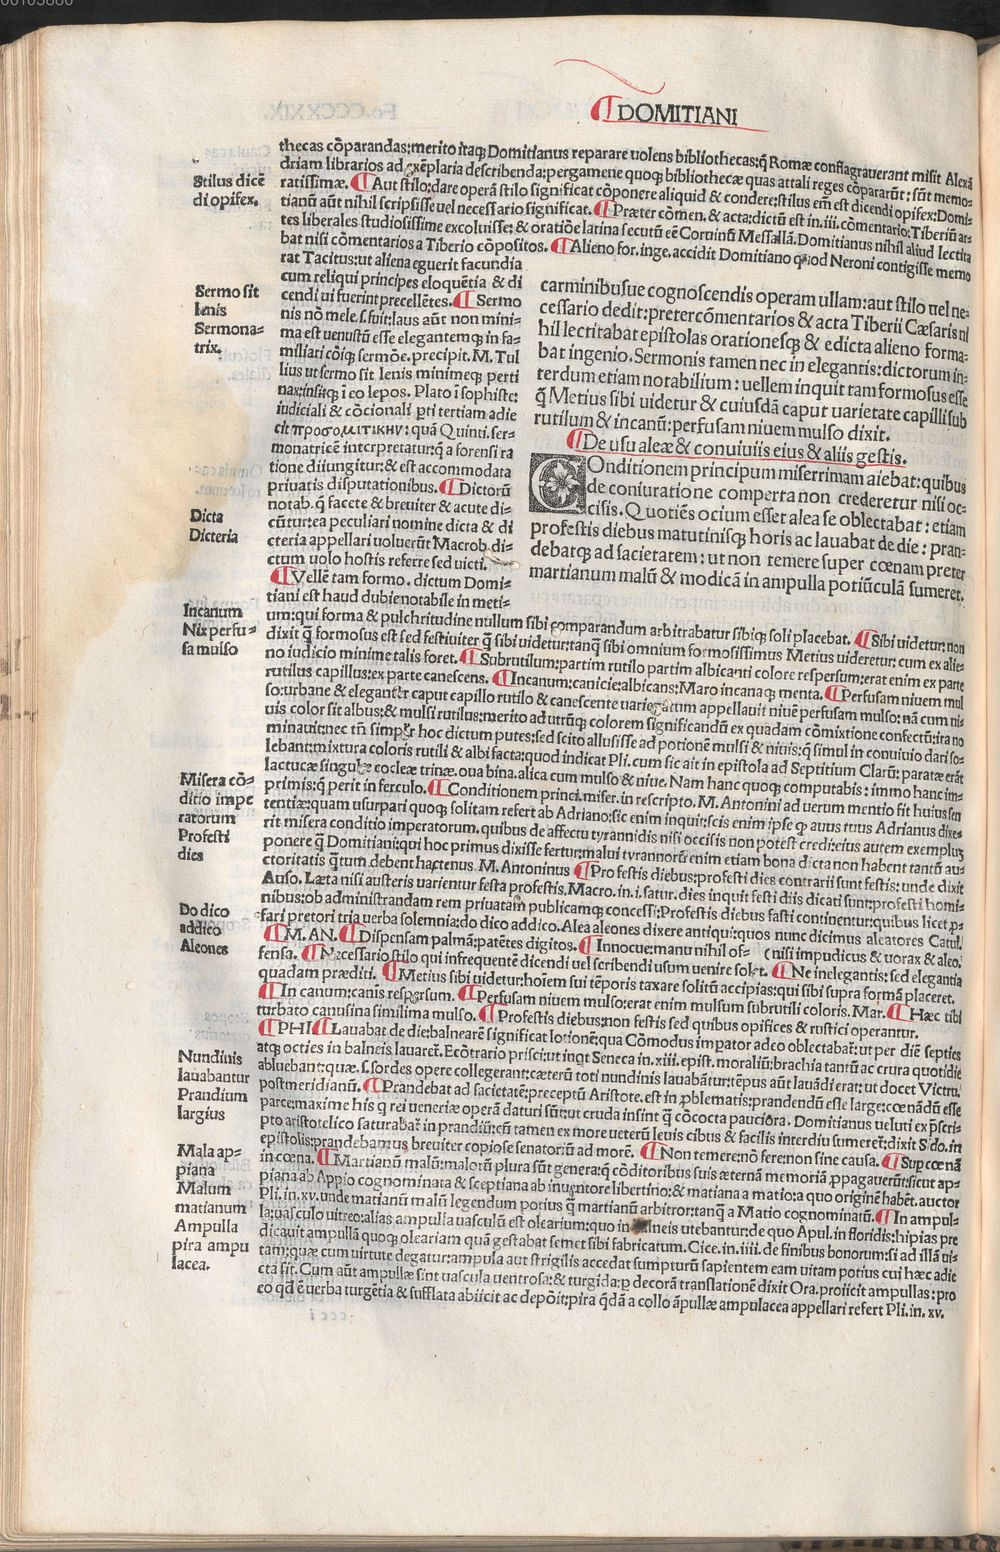 ¶DOMITIANI
thecas cōparandas:merito itaq; Domitianus reparare uolens bibliothecas:q̄ Romæ conflagrauerant misit Alexā
driam librarios ad exēplaria describenda:pergamene quoq; bibliothecæ quas attali reges cōpararūt: sūt memo-
ratissimæ. ¶Aut stilo:dare operā stilo significat cōponere aliquid & condere:stilus em̄ est dicendi opifex:Domi-
tianū aūt nihil scripsisse uel necessario significat. ¶Præter cōmen. & acta:dictū est in.iii.cōmentario:Tiberiū ar-
tes liberales studiosissime excoluisse: & oratiōe latina secutū eē Coruinū Messallā.Domitianus nihil aliud lectita
bat nisi cōmentarios a Tiberio cōpositos. ¶Alieno for.inge.accidit Domitiano quod Neroni contigisse memo
Stilus dicē
di opifex.
rat Tacitus:ut aliena eguerit facundia
cum reliqui principes eloquētia & di
cendi ui fuerint precellētes. ¶Sermo
nis nō mele.s.fuit:laus aūt non mini-
ma est uenustū esse elegantemq; in fa-
miliari cōiq; sermōe.precipit.M.Tul
lius ut sermo sit lenis minimeq; perti
nax:insitq; ī eo lepos. Plato ī sophiste:
iudiciali & cōcionali pti tertiam adie
cit προσομιτικην: quā Quinti.ser-
monatricē interpretatur:q̄ a forensi ra
tione diiungitur:& est accommodata
priuatis disputationibus. ¶Dictorū
notab.q̄ facete & breuiter & acute di-
cūtur:ea peculiari nomine dicta & di
cteria appellari uoluerūt Macrob.di-
ctum uolo hostis referre sed uicti.
¶Vellē tam formo.dictum Domi-
tiani est haud dubie notabile in meti-
Sermo sit
lenis
Sermona-
trix.
Dicta
Dicteria
carminibusue cognoscendis operam ullam:aut stilo uel ne-
cessario dedit:preter cōmentarios & acta Tiberii Cæsaris ni
hil lectitabat epistolas orationesq; & edicta alieno forma-
bat ingenio.Sermonis tamen nec in elegantis:dictorum in-
terdum etiam notabilium: uellem inquit tam formosus esse
q̄ Metius sibi uidetur & cuiusdā caput uarietate capilli sub
rutilum & incanū:perfusam niuem mulso dixit.
¶De usu aleæ & conuiuiis eius & aliis gestis.
COnditionem principum miserrimam aiebat:quibus
de coniuratione comperta non crederetur nisi oc-
cisis. Quotiēs ocium esset alea se oblectabat: etiam
profestis diebus matutinisq; horis ac lauabat de die: pran-
debatq; ad sacietatem: ut non temere super cœnam preter
martianum malū & modicā in ampulla potiūculā sumeret.
um:qui forma & pulchritudine nullum sibi comparandum arbitrabatur sibiq; soli placebat. ¶Sibi uidetur:non
dixit q̄ formosus est sed festiuiter q̄ sibi uidetur:tanq̄ sibi omnium formosissimus Metius uideretur: cum ex alie-
no iudicio minime talis foret. ¶Subrutilum:partim rutilo partim albicanti colore respersum:erat enim ex parte
rutilus capillus:ex parte canescens. ¶Incanum:canicie:albicans:Maro incanaq; menta. ¶Perfusam niuem mul
so:urbane & eleganter caput capillo rutilo & canescente uariegatum appellauit niuē perfusam mulso:nā cum ni-
uis color sit albus:& mulsi rutilus:merito ad utrūq; colorem significandū ex quadam cōmixtione confectū:ita no
minauit:nec tn̄ simp̄r hoc dictum putes:sed scito allusisse ad potionē mulsi & niuis:q̄ simul in conuiuio dari so-
lebant:mixtura coloris rutili & albi facta:quod indicat Pli.cum sic ait in epistola ad Septitium Clarū: paratæ erāt
lactucæ singulæ cocleæ trinæ.oua bina.alica cum mulso & niue. Nam hanc quoq; computabis: immo hanc im-
primis:q̄ perit in ferculo. ¶Conditionem princi.miser.in rescripto.M.Antonini ad uerum mentio fit huius sen
tentiæ:quam usurpari quoq; solitam refert ab Adriano:sic enim inquit:scis enim ipse q; auus tuus Adrianus dixe-
rit misera conditio imperatorum,quibus de affectu tyrannidis nisi occisis non potest credi:eius autem exemplū
ponere q̄ Domitiani:qui hoc primus dixisse fertur:malui tyrannorū enim etiam bona dicta non habent tantū au-
ctoritatis q̄tum debent hactenus M.Antoninus ¶Profestis diebus:profesti dies contrarii sunt festis: unde dixit
Auso. Læta nisi austeris uarientur festa profestis,Macro.in.i.satur.dies inquit festi diis dicati sunt:profesti homi-
nibus:ob administrandam rem priuatam publicamq; concessi:Profestis diebus fasti continentur:quibus licet p-
fari pretori tria uerba solemnia:do dico addico.Alea aleones dixere antiqui:quos nunc dicimus aleatores Catul.
¶M.AN.¶Dispensam palmā:patētes digitos. ¶Innocue:manu nihil of- (nisi impudicus & uorax & aleo.
fensa. ¶Necessario stilo qui infrequentē dicendi uel scribendi usum uenire solet. ¶Ne inelegantis: sed elegantia
quadam præditi. ¶Metius sibi uidetur:hoiem sui tēporis taxare solitū accipias:qui sibi supra formā placeret.
¶In canum:canis respersum. ¶Perfusam niuem mulso:erat enim mulsum subrutili coloris. Mar. ¶Hæc tibi
turbato canusina simillima mulso. ¶Profestis diebus:non festis sed quibus opifices & rustici operantur.
¶PHI¶Lauabat de die:balnearē significat lotionē:qua Cōmodus impator adeo oblectabat̄: ut per diē septies
atq; octies in balneis lauaret.Ecōtrario prisci:ut inqt Seneca in.xiii.epist.moraliū:brachia tantū ac crura quotidie
abluebant:quæ.s.sordes opere collegerant:cæterū toti nundinis lauabātur:tēpus aūt lauādi erat: ut docet Victru.
postmeridianū. ¶Prandebat ad sacietatē:preceptū Aristote.est in problematis:prandendū esse large:cœnādū esse
parce:maxime his q rei ueneriæ operā daturi sūt:ut cruda insint q cōcocta pauciora. Domitianus ueluti ex p̄scri-
pto aristotelico saturabat̄ in prandiū:cū tamen ex more ueterū leuis cibus & facilis interdiu sumeret̄:dixit Sido.in
epistolis:prandebamus breuiter copiose senatoriū ad morē. ¶Non temere:nō fere:non sine causa. ¶Sup cœnā
in cœna. ¶Martianū malū:malorū plura sūt genera:q cōditoribus suis æternā memoriā ppagauerūt:sicut ap-
piana ab Appio cognominata & sceptiana ab inuentore libertino:& matiana a matio:a quo originē habēt.auctor
Pli.in.xv.unde matianū malū legendum potius q̄ martianū arbitror:tanq̄ a Matio cognominatū. ¶In ampul-
la:uasculo uitreo:alias ampulla uasculū est olearium:quo in balneis utebantur:de quo Apul.in floridis:hipias pre
dicauit ampullā quoq; oleariam quā gestabat semet sibi fabricatum.Cice.in.iiii.de finibus bonorum:si ad illā ui-
tam:quæ cum uirtute degatur:ampula aut strigilis accedat sumpturū sapientem eam uitam potius cui hæc adie
cta sit. Cum aūt ampullæ sint uascula uentrosa:& turgida: p decorā translationē dixit Ora.proiicit ampullas: pro
eo qd ē uerba turgētia & sufflata abiicit ac depōit:pira q̄dā a collo āpullæ ampulacea appellari refert Pli.in. xv.
Incanum
Nix perfu-
sa mulso
Misera cō-
ditio impe
ratorum
Profesti
dies
Do dico
addico
Aleones
Nundinis
lauabantur
Prandium
largius
Mala ap-
piana
Malum
matianum
Ampulla
pira ampu
lacea.